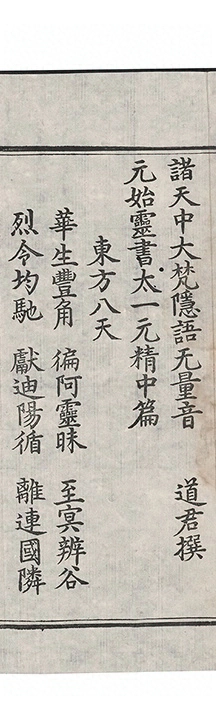 諸天中大梵隱語无量音　道君撰
元始靈書太一元精中篇
東方八天
華生豐角　徧阿靈昧　至冥辨谷
烈令均馳　獻迪陽循　離連國隣